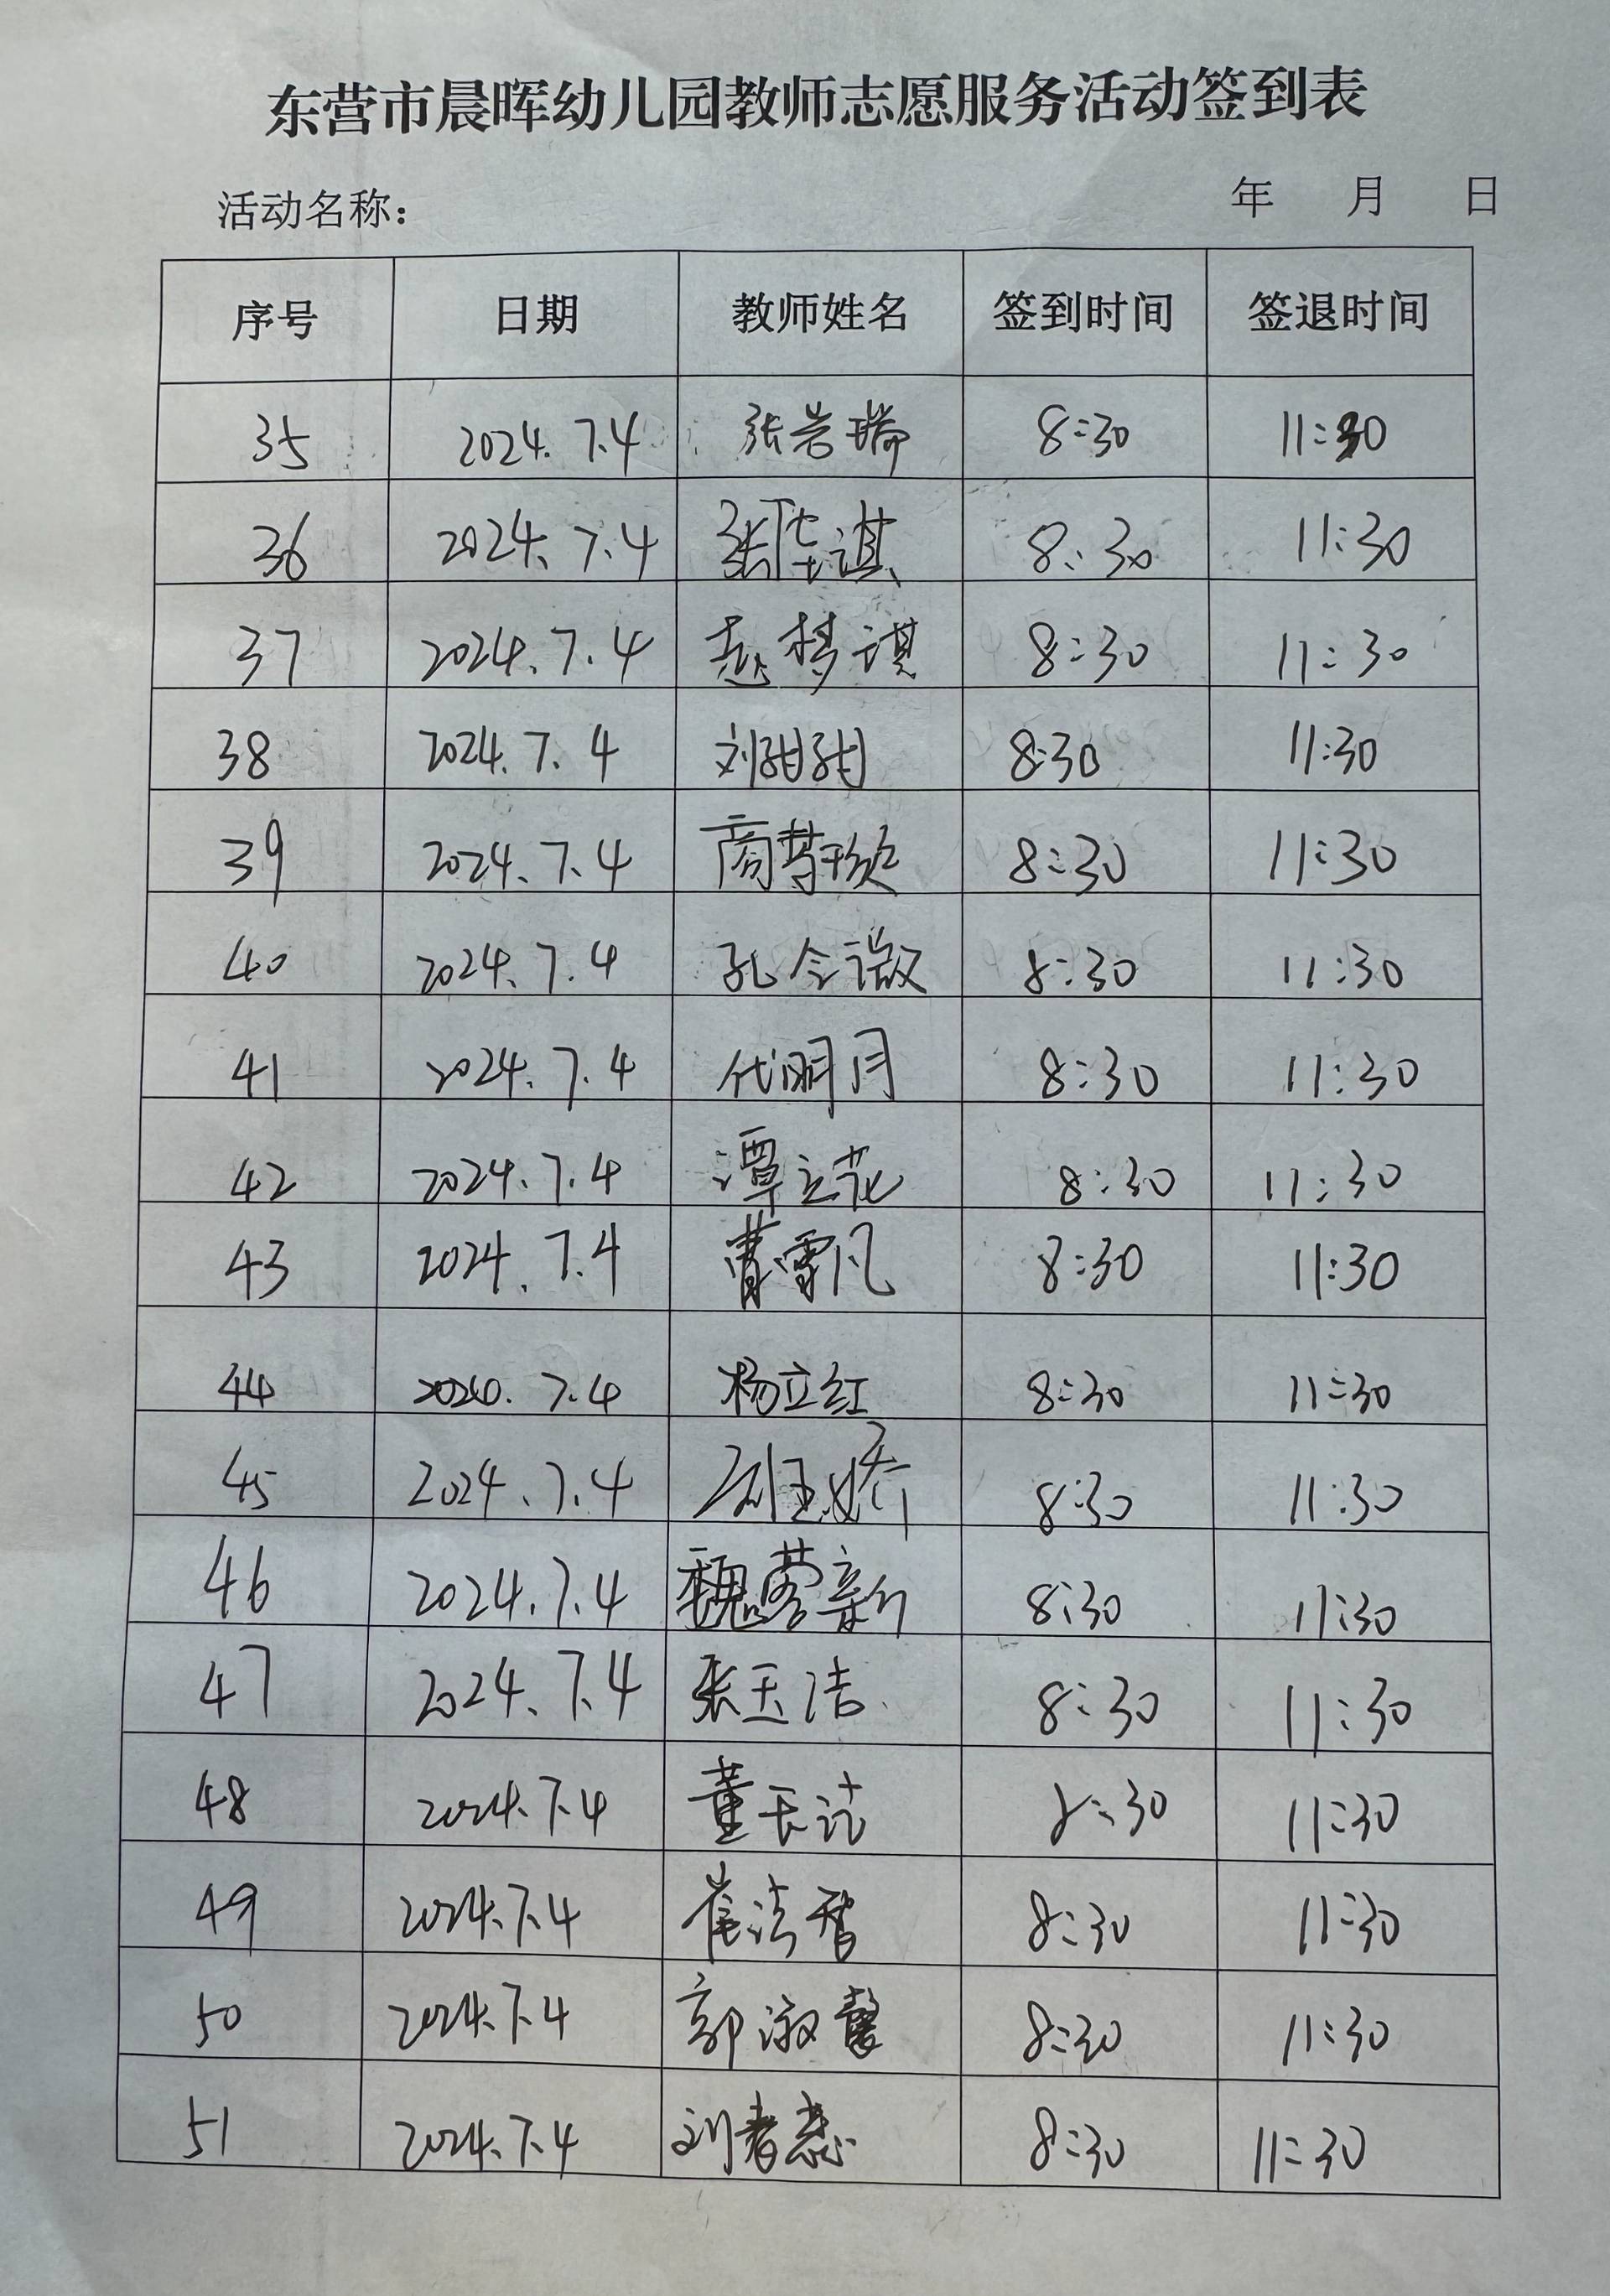 东营市晨晖幼儿园教师志愿服务活动签到表
活动名称： 年 月 日
序号 日期 教师姓名 签到时间 签退时间
35 2024.7.4 张若瑞 8:30 11:30
36 2024.7.4 8:30 11:30
37 2024.7.4 赵梦琪 8:30 11:30
38 2024.7.4 刘甜甜 8:30 11:30
39 2024.7.4 8:30 11:30
40 2024.7.4 孔令 8:30 11:30
41 2024.7.4 代明月 8:30 11:30
42 2024.7.4 潭立花 8:30 11:30
43 2024.7.4 曹雪凡 8:30 11:30
44 7.4 杨立红 8:30 11:30
45 2024.7.4 8:30 11:30
46 2024.7.4 魏蓉新 8:30 11:30
47 2024.7.4 张玉洁 8:30 11:30
48 2024.7.4 董天 8:30 11:30
49 2024.7.4 崔洁 8:30 11:30
50 2024.7.4 郭淑馨 8:30 11:30
51 2024.7.4 刘孝蕊 8:30 11:30